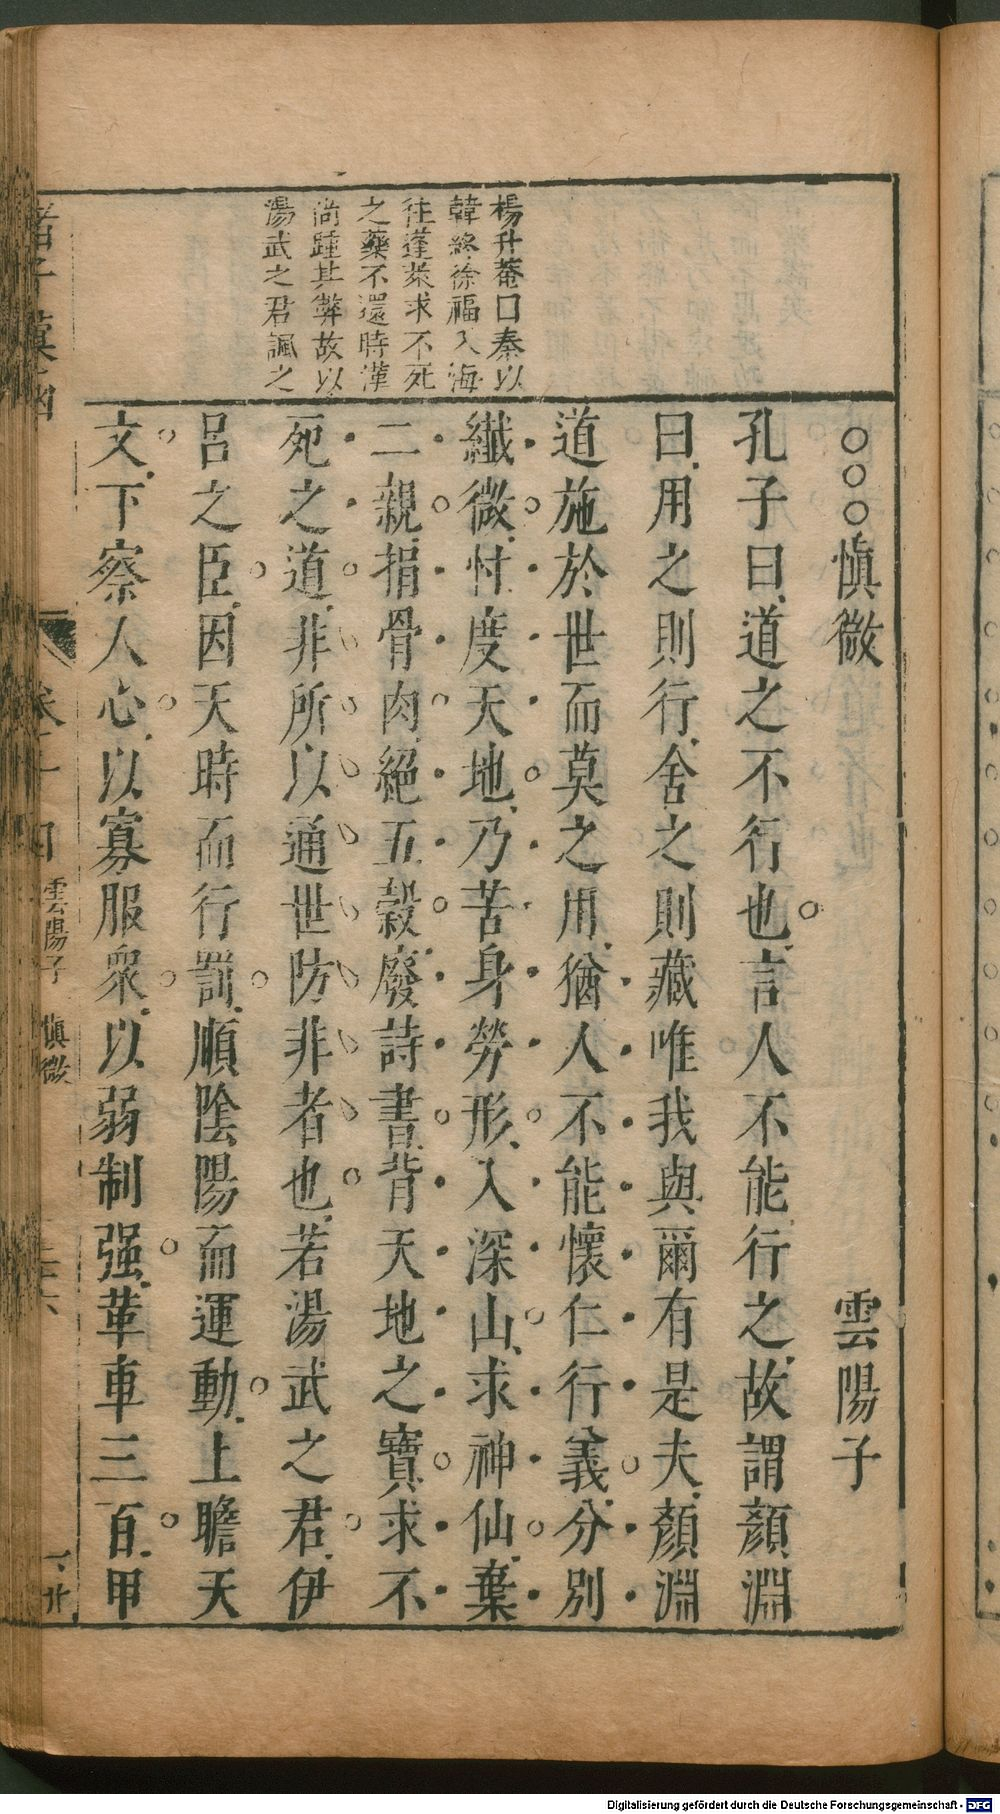 楊升菴曰秦以
韓終徐福入海
往蓬萊求不死
之藥不還時漢
尚踵其弊故以
湯武之君諷之
○○○慎微 雲陽子
孔子曰道之不行也言人不能行之故謂顏淵
曰用之則行舍之則藏唯我與爾有是夫顏淵
道施於世而莫之用猶人不能懷仁行義分別
纖微忖度天地乃苦身勞形入深山求神仙棄
二親捐骨肉絕五穀廢詩書背天地之寶求不
死之道非所以通世防非者也若湯武之君伊
呂之臣因天時而行罰順陰陽而運動上瞻天
文下察人心以寡服衆以弱制强革車三百甲
諸子彙函
雲陽子 慎微
Digitalisierung gefördert durch die Deutsche Forschungsgemeinschaft - DFG